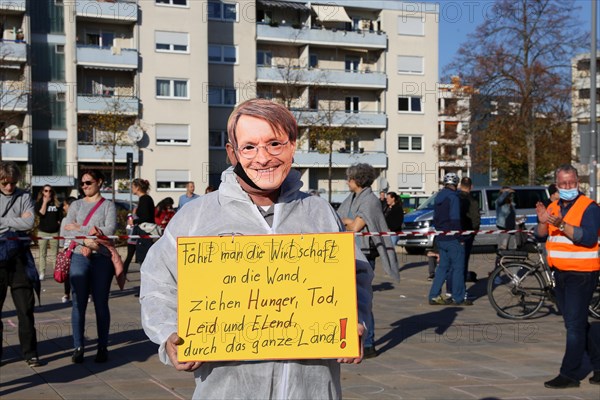 Fährt man die Wirtschaft
an die Wand,
ziehen Hunger, Tod,
Leid und Elend,
durch das ganze Land!